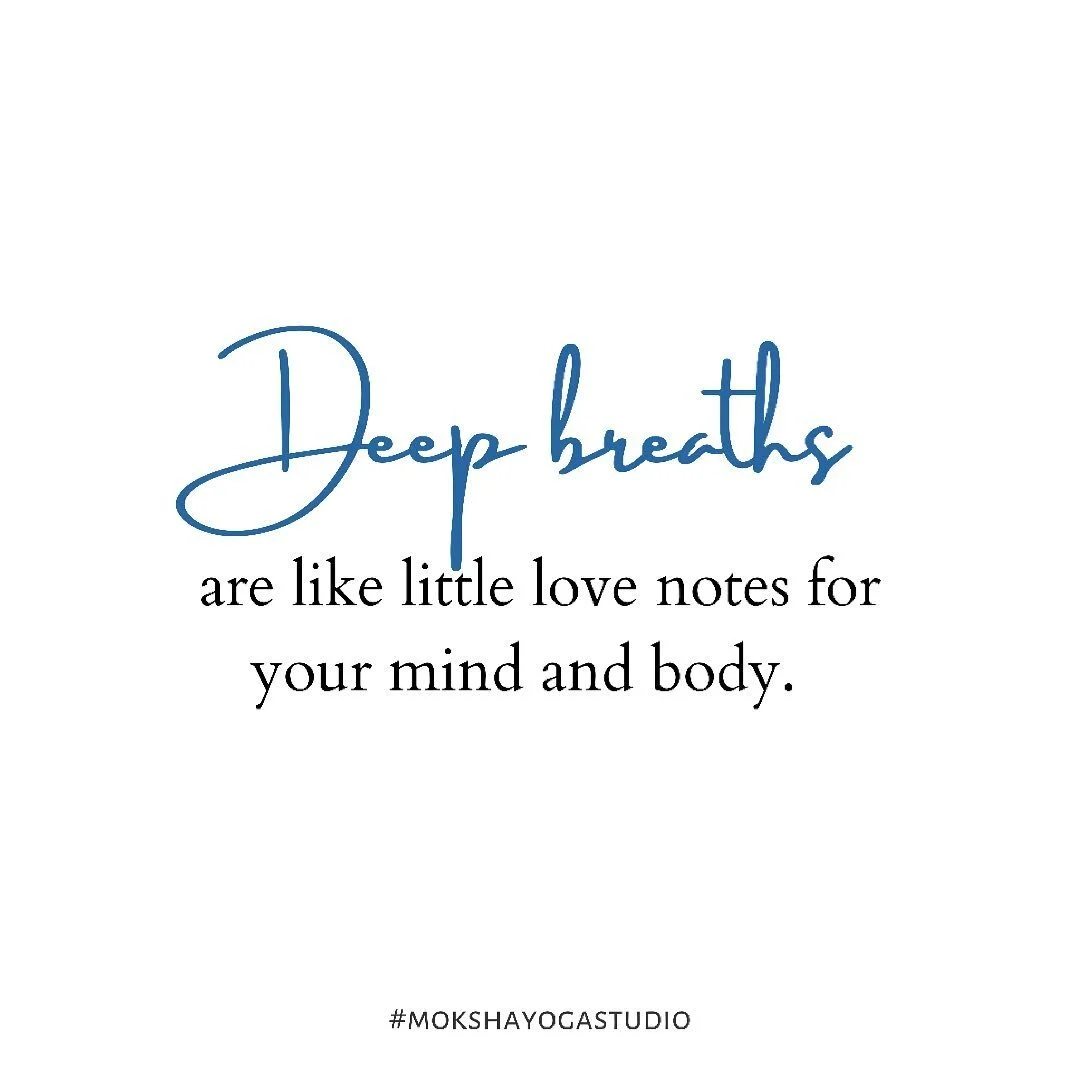 Deep breaths
are like little love notes for
your mind and body.
#MOKSHAYOGASTUDIO